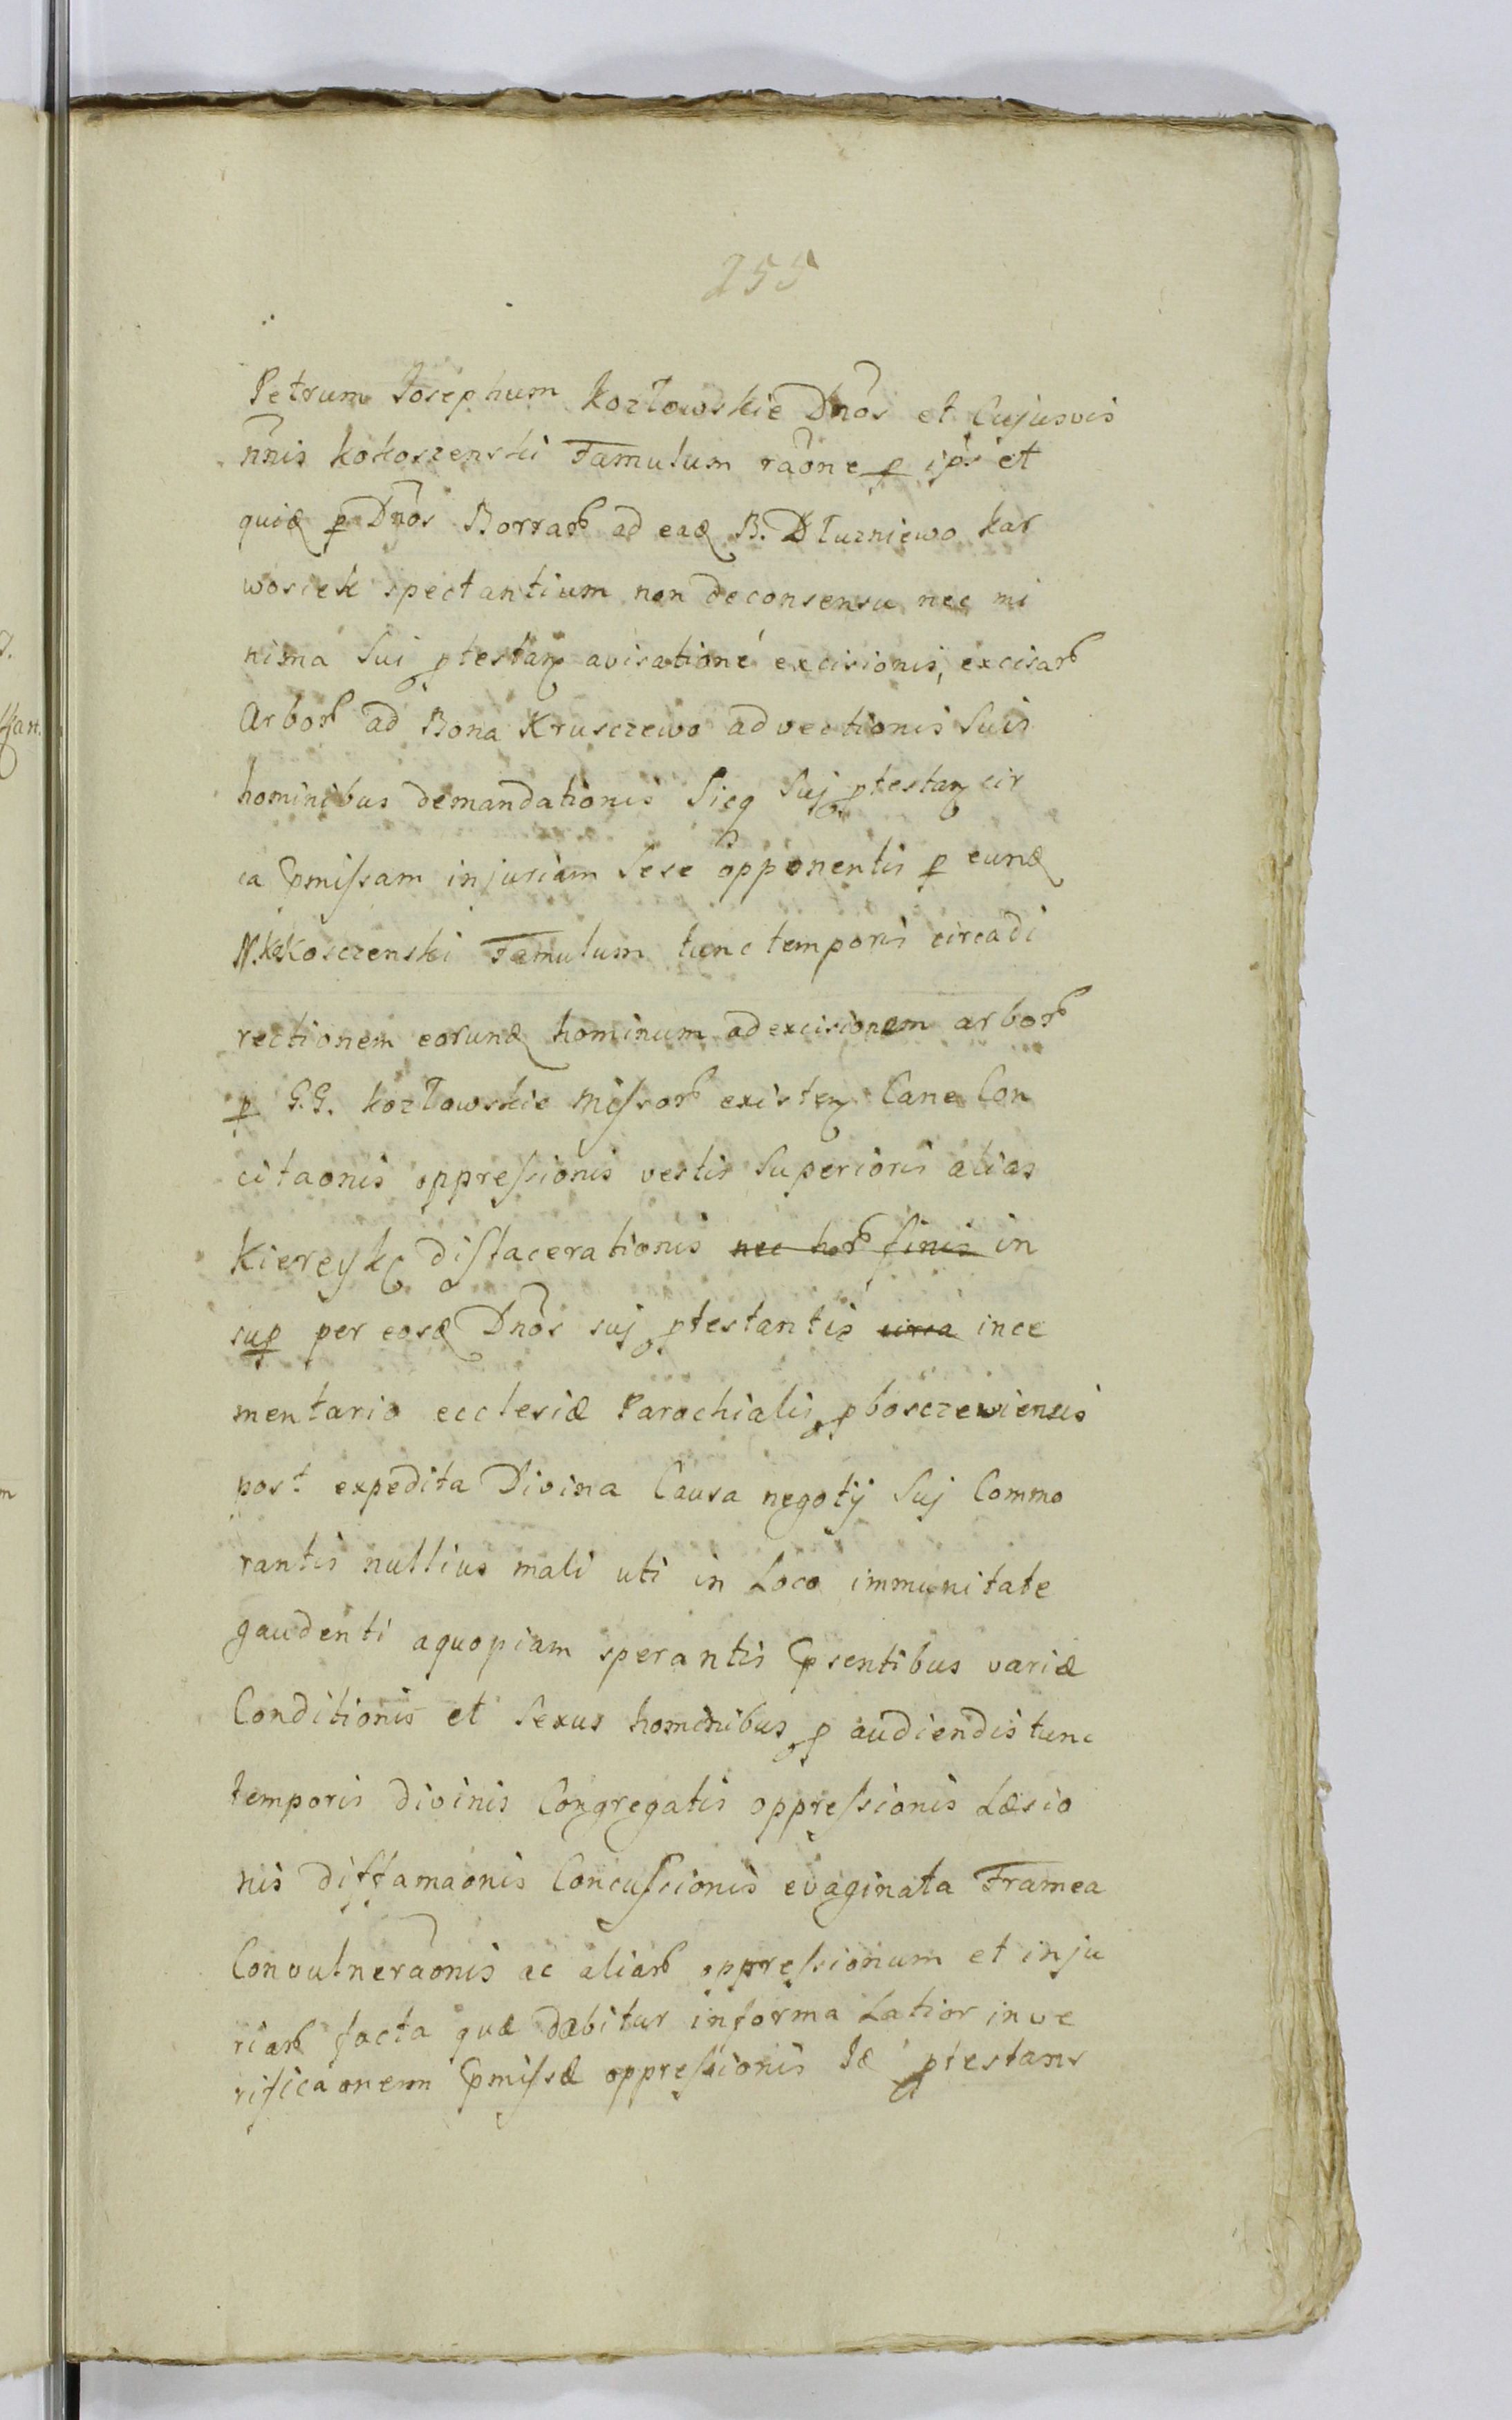 255
Petrum Josephum Kozłowskie Dnos et Cujusvis
nnis Kokoszenski Famulum raone p ips et
quidē p Dnos Borrarꝝ ad eadē B. Dłuzniewo Kar
wosiek spectantium non deconsensu nec mi
nima Sui ptestañ avisatione excisionis, excisarꝝ
Arborꝝ ad Bona Krusczewo advectionis Suis
hominibus demandationis Sicq Suj ptestañ cir
ca Pmissam injuriam Sese opponentis p eundē
N. Kokosczenski Famulum tunc temporis circa di
rectionem eorundē hominum ad excisionem arborꝝ
p G.G. Kozłowskie Missorꝝ existeñ Cane Con
citaonis oppressionis vestis Superioris alias
Kiereyk dislacerationis nec horꝝ finis in
sup per eosdē Dnos suj ptestantis circa in ce
mentario ecclesiæ Parochialis pbosczewiensis
post expedita Divina Causa negotij Suj Commo
rantis nullius mali uti in Loco immunitate
gaudenti aquopiam sperantis Psentibus variæ
Conditionis et Sexus hominibus p audiendis tunc
temporis divinis Congregatis oppressionis Læsio
nis diffamaonis Concussionis evaginata Framea
Convulneraonis ac aliarꝝ oppressionum et inju
riarꝝ facta quæ dabitur informa Latior in ve
rificaonem Pmissæ oppressionis Idē ptestans